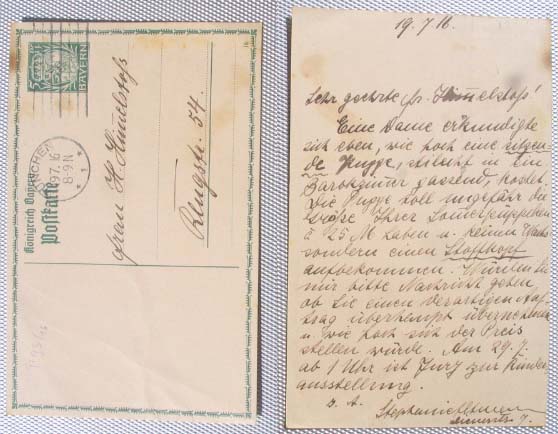 5
BAYERN
MÜNCHEN
19.7.16
8-9 N
* 1 *
Königreich Bayern
Postkarte
Frau H. Himmelstoß
54.
19.7.16.
Sehr geehrte Fr. Himmelstoß!
Eine Dame erkundigte
sich eben, wie hoch eine sitzen
de Puppe, in ein
Barockzimmer passend, kostet.
Die Puppe soll ungefähr die
Größe Ihrer
à 25 M haben u. keinen Wachs
sondern einen Stoffkopf
aufbekommen. Würden Sie
mir bitte Nachricht geben
ob Sie einen derartigen Auf
trag überhaupt übernehmen
u. wie hoch sich der Preis
stellen würde. Am 29.7.
ab 1 Uhr ist Jury zur
ausstellung.
Stephanie